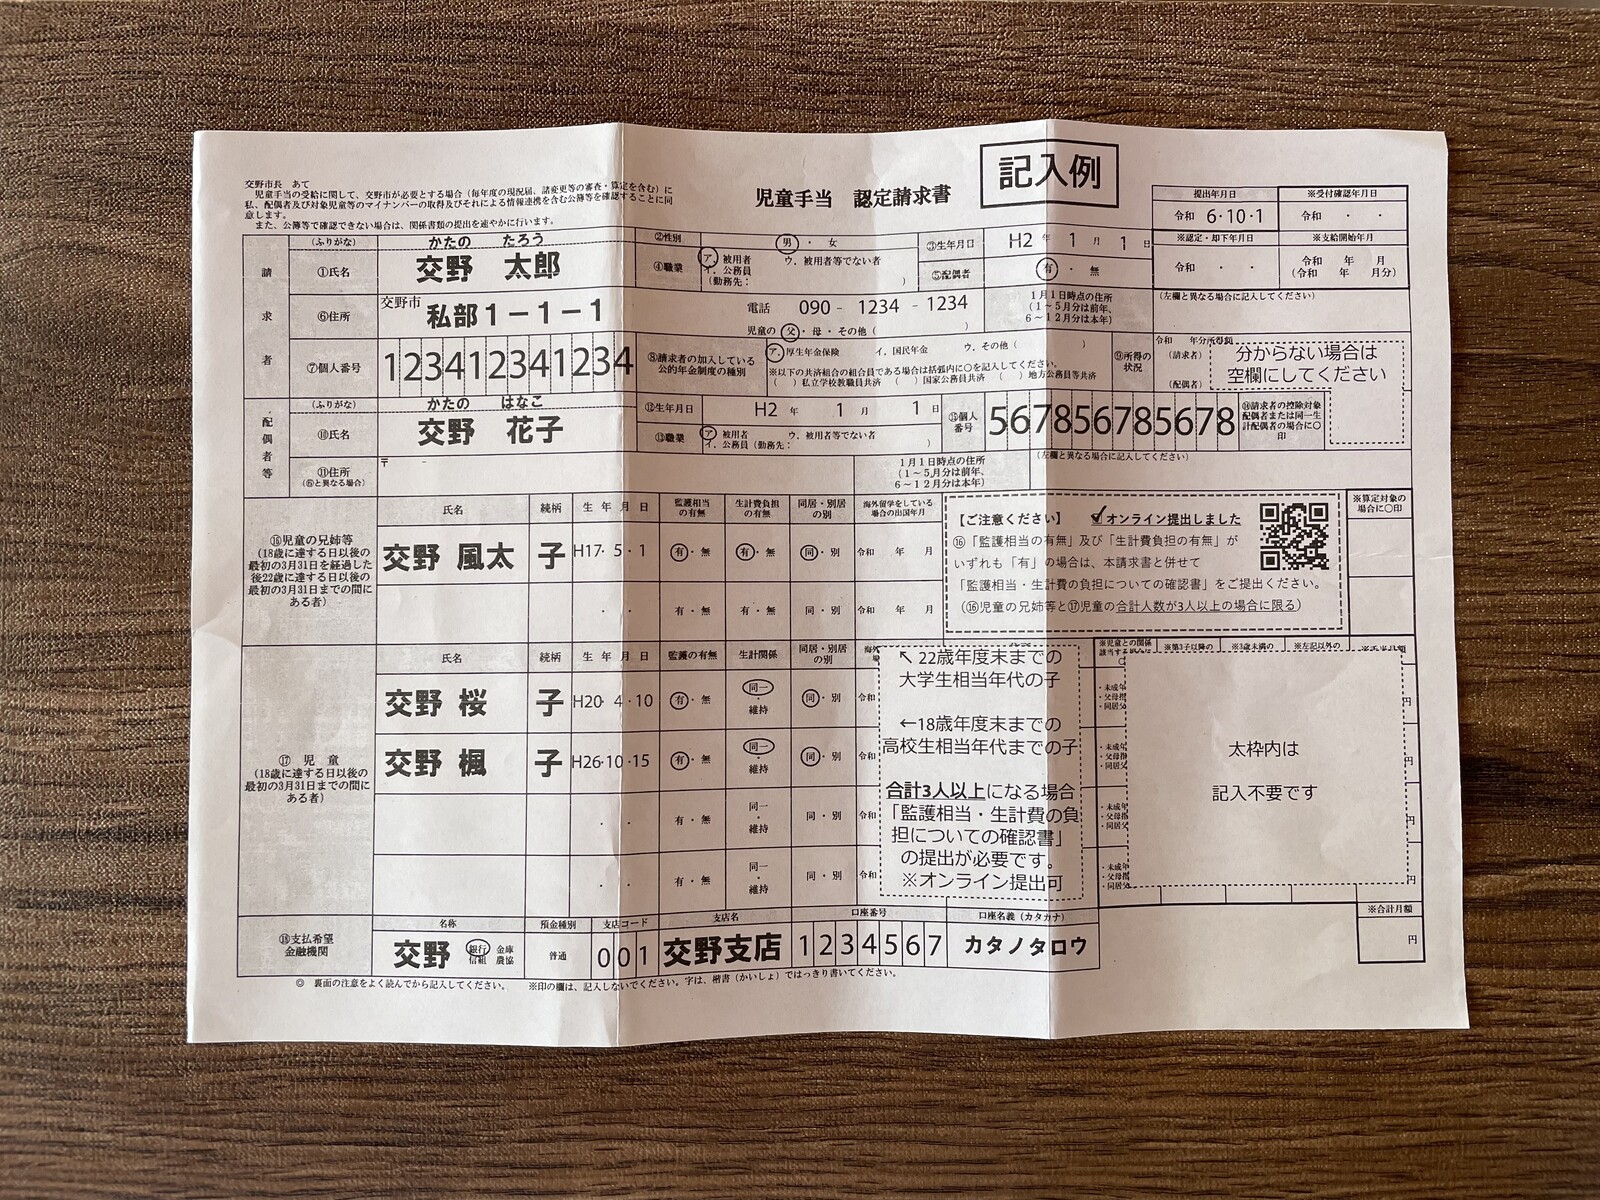 記入例
交野市長 あて
児童手当の受給に関して、交野市が必要とする場合（毎年度の現況届、諸変更等の審査・算定を含む）に
私、配偶者及び対象児童等のマイナンバーの取得及びそれによる情報連携を含む公簿等を確認することに同
意します。
また、公簿等で確認できない場合は、関係書類の提出を速やかに行います。
児童手当 認定請求書
提出年月日 ※受付確認年月日
令和 6・10・1 令和 ・ ・
※認定・却下年月日 ※支給開始年月
令和 ・ ・ 令和 年 月
（令和 年 月分）
請求者
（ふりがな） かたの たろう
①氏名 交野 太郎
②性別 男 ・ 女
③生年月日 H2 年 1 月 1 日
④職業 ア．被用者 ウ．被用者等でない者
イ．公務員
（勤務先： ）
⑤配偶者 有 ・ 無
⑥住所 交野市 私部１－１－１
電話 090 - 1234 - 1234
児童の 父・母・その他（ ）
1月1日時点の住所
（1～5月分は前年、
6～12月分は本年）
（左欄と異なる場合に記入してください）
⑦個人番号 123412341234
⑧請求者の加入している
公的年金制度の種別
ア．厚生年金保険 イ．国民年金 ウ．その他（ ）
※以下の共済組合の組合員である場合は括弧内に○を記入してください。
（ ）私立学校教職員共済 （ ）国家公務員共済 （ ）地方公務員等共済
⑨所得の
状況
令和 年分所得額
（請求者）
（配偶者）
分からない場合は
空欄にしてください
配偶者等
（ふりがな） かたの はなこ
⑩氏名 交野 花子
⑫生年月日 H2 年 1 月 1 日
⑬職業 ア．被用者 ウ．被用者等でない者
イ．公務員（勤務先： ）
⑮個人
番号 567856785678
⑭請求者の控除対象
配偶者または同一生
計配偶者の場合に○
印
⑪住所
（⑥と異なる場合）
〒 －
1月1日時点の住所
（1～5月分は前年、
6～12月分は本年）
（左欄と異なる場合に記入してください）
⑯児童の兄姉等
（18歳に達する日以後の
最初の3月31日を経過した
後22歳に達する日以後の
最初の3月31日までの間に
ある者）
氏名 続柄 生 年 月 日 監護相当の有無 生計費負担の有無 同居・別居の別 海外留学をしている場合の出国年月
交野 風太 子 H17・5・1 有・無 有・無 同・別 令和 年 月
・ ・ 有・無 有・無 同・別 令和 年 月
【ご注意ください】 ✓オンライン提出しました
⑯「監護相当の有無」及び「生計費負担の有無」が
いずれも「有」の場合は、本請求書と併せて
「監護相当・生計費の負担についての確認書」をご提出ください。
（⑯児童の兄姉等と⑰児童の合計人数が3人以上の場合に限る）
※算定対象の
場合に○印
⑰ 児 童
（18歳に達する日以後の
最初の3月31日までの間に
ある者）
氏名 続柄 生 年 月 日 監護の有無 生計関係 同居・別居の別
交野 桜 子 H20・4・10 有・無 同一・維持 同・別 令和
交野 楓 子 H26・10・15 有・無 同一・維持 同・別 令和
・ ・ 有・無 同一・維持 同・別 令和
・ ・ 有・無 同一・維持 同・別 令和
↖ 22歳年度末までの
大学生相当年代の子
←18歳年度末までの
高校生相当年代までの子
合計3人以上になる場合
「監護相当・生計費の負
担についての確認書」
の提出が必要です。
※オンライン提出可
※児童との関係
太枠内は
記入不要です
円
円
円
円
※合計月額
円
⑱支払希望
金融機関
名称 預金種別 支店コード 支店名 口座番号 口座名義（カタカナ）
交野 銀行 金庫 信組 農協 普通 001 交野支店 1234567 カタノタロウ
◎ 裏面の注意をよく読んでから記入してください。 ※印の欄は、記入しないでください。字は、楷書（かいしょ）ではっきり書いてください。